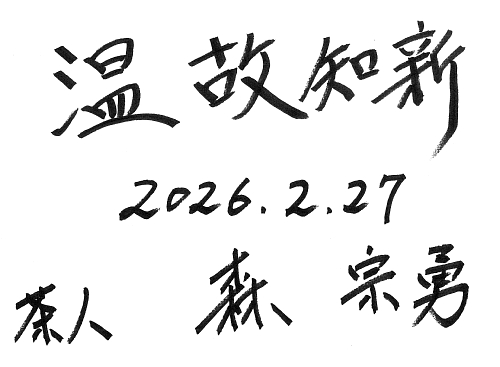 温故知新
2026.2.27
茶人 森 宗勇